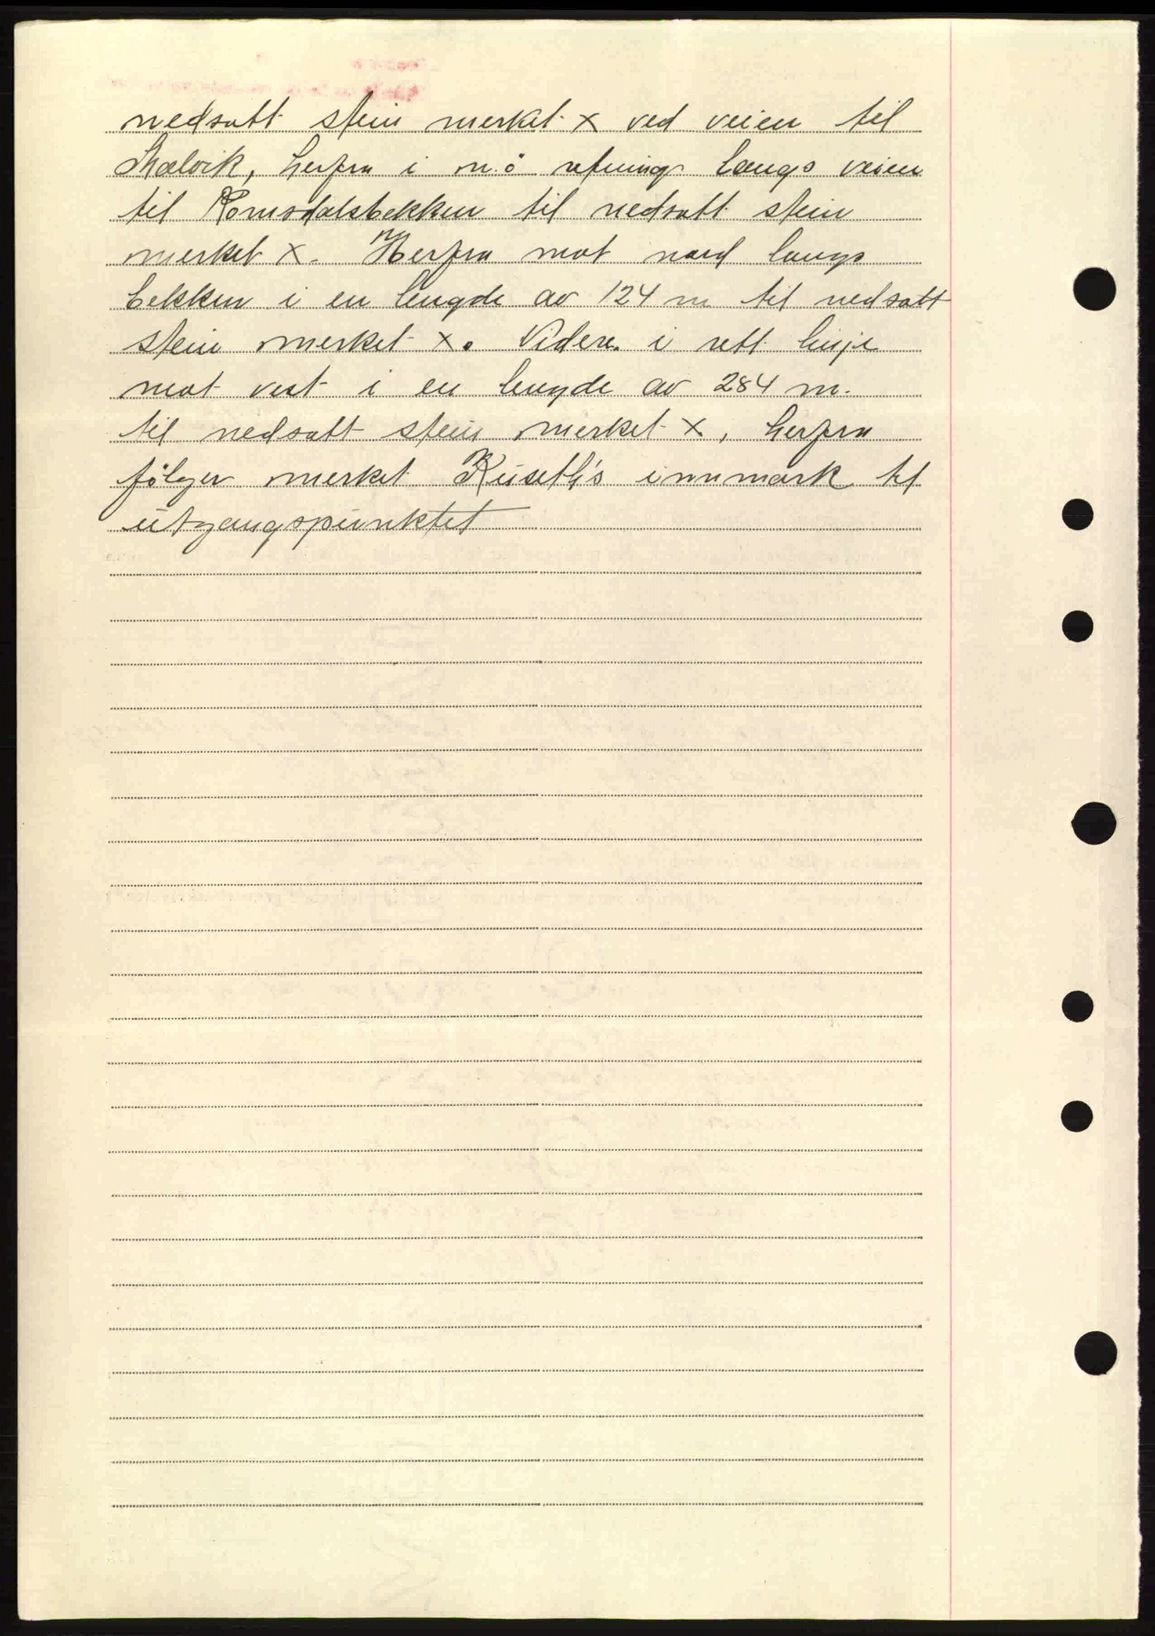 nedsatt stein merket x ved veien til
Skælvik, herfra i n.ö retning langs veien
til Romsdalsbekken til nedsatt stein
merket x. Herfra mot nord langs
bekken i en lengde av 124 m til nedsatt
stein merket x. Videre i rett linje
mot vest i en lengde av 284 m.
til nedsatt stein merket x, herfra
følger merket Ruseth's innmark til
utgangspunktet